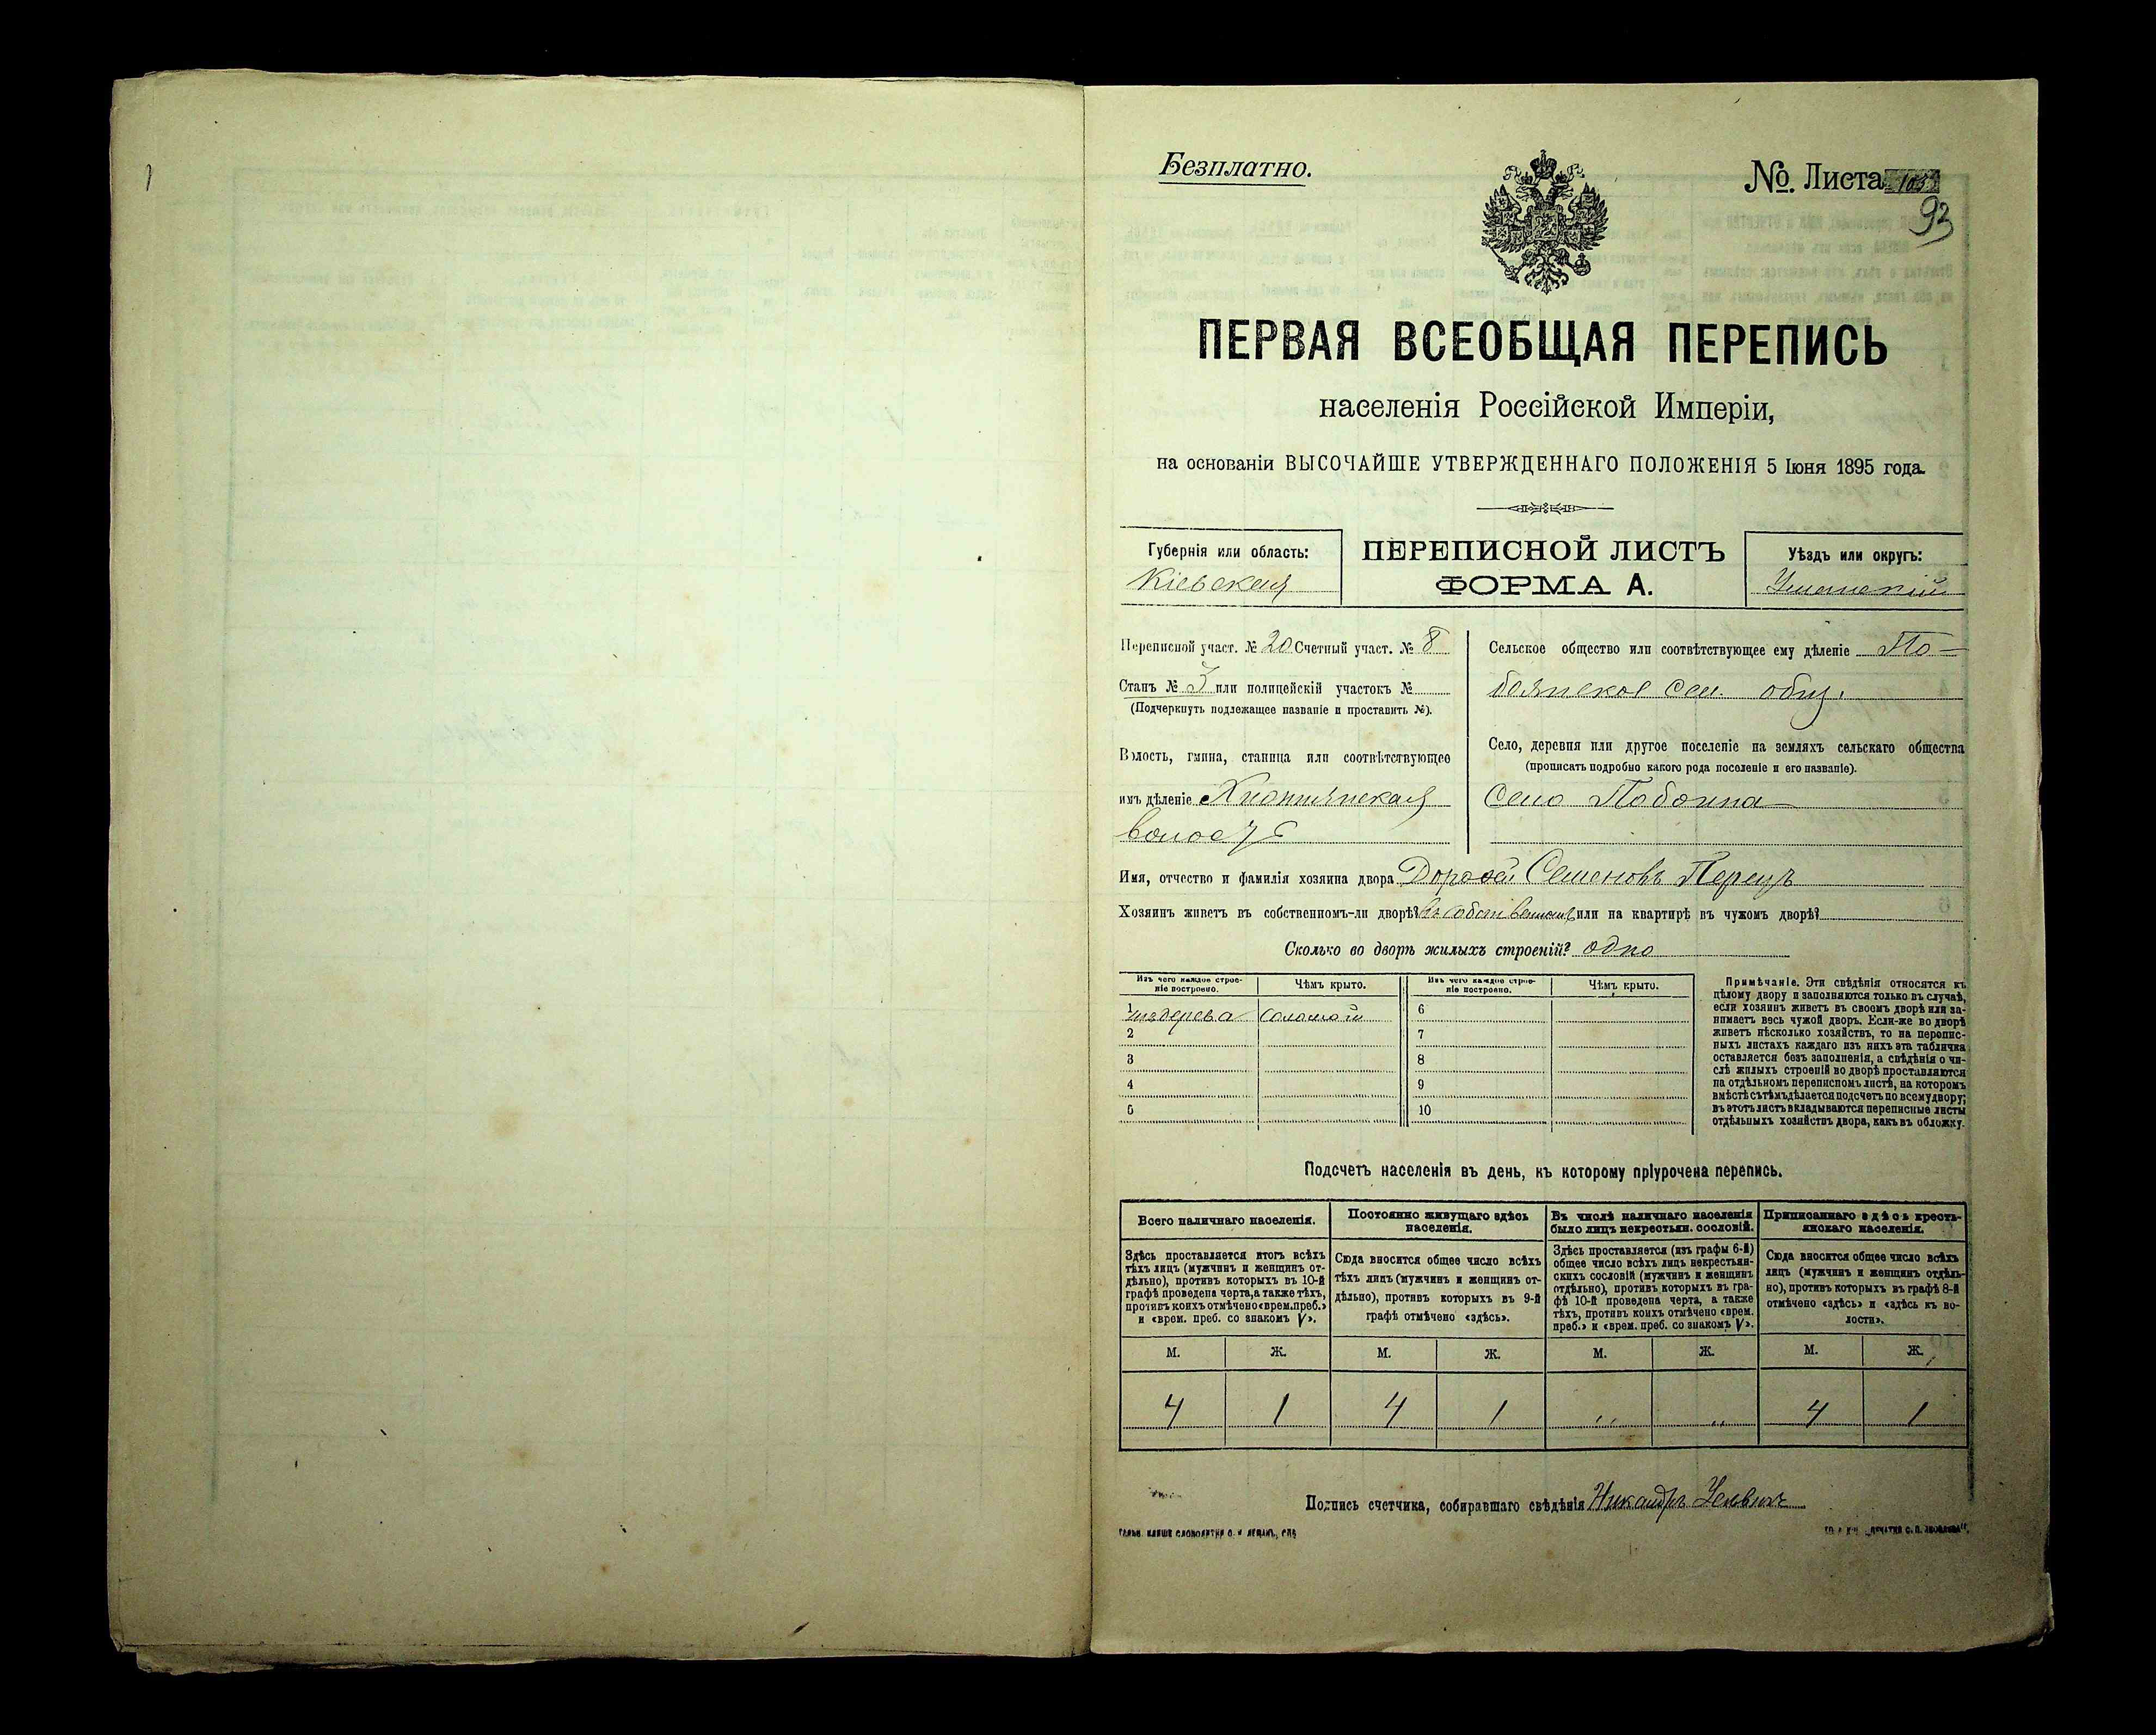 Безплатно.
№. Листа
93
ПЕРВАЯ ВСЕОБЩАЯ ПЕРЕПИСЬ
населенія Россійской Имперіи,
на основаніи ВЫСОЧАЙШЕ УТВЕРЖДЕННАГО ПОЛОЖЕНІЯ 5 Іюня 1895 года.
Губернія или область:
Кіевская
ПЕРЕПИСНОЙ ЛИСТЪ
ФОРМА А.
Уѣздъ или округъ:
Уманскій
Переписной участ. № 20 Счетный участ. № 8
Станъ № 3 или полицейскій участокъ №
(Подчеркнуть подлежащее названіе и проставить №).
Волость, гмина, станица или соотвѣтствующее
имъ дѣленіе
волость
Сельское общество или соотвѣтствующее ему дѣленіе По-
боянское сел. общ.
Село, деревня или другое поселеніе на земляхъ сельскаго общества
(прописать подробно какого рода поселеніе и его названіе).
Село Побойна
Имя, отчество и фамилія хозяина двора Дорофей Семеновъ Перецъ
Хозяинъ живетъ въ собственномъ-ли дворѣ? въ собственномъ или на квартирѣ въ чужомъ дворѣ?
Сколько во дворѣ жилыхъ строеній? одно
Изъ чего каждое строе-
ніе построено.
Чѣмъ крыто.
Изъ чего каждое строе-
ніе построено.
Чѣмъ крыто.
1 изъ дерева соломой
2
3
4
5
6
7
8
9
10
Примѣчаніе. Эти свѣдѣнія относятся къ
цѣлому двору и заполняются только въ случаѣ,
если хозяинъ живетъ въ своемъ дворѣ или за-
нимаетъ весь чужой дворъ. Если-же во дворѣ
живетъ нѣсколько хозяйствъ, то на перепис-
ныхъ листахъ каждаго изъ нихъ эта табличка
оставляется безъ заполненія, а свѣдѣнія о чи-
слѣ жилыхъ строеній во дворѣ проставляются
на отдѣльномъ переписномъ листѣ, на которомъ
вмѣстѣ съ тѣмъ дѣлается подсчетъ по всему двору;
въ этотъ листъ вкладываются переписные листы
отдѣльныхъ хозяйствъ двора, какъ въ обложку.
Подсчетъ населенія въ день, къ которому пріурочена перепись.
Всего наличнаго населенія.
Здѣсь проставляется итогъ всѣхъ
тѣхъ лицъ (мужчинъ и женщинъ от-
дѣльно), противъ которыхъ въ 10-й
графѣ проведена черта, а также тѣхъ,
противъ коихъ отмѣчено «врем. преб.»
и «врем. преб. со знакомъ V».
Постоянно живущаго здѣсь
населенія.
Сюда вносится общее число всѣхъ
тѣхъ лицъ (мужчинъ и женщинъ от-
дѣльно), противъ которыхъ въ 9-й
графѣ отмѣчено «здѣсь».
Въ числѣ наличнаго населенія
было лицъ некрестьян. сословій.
Здѣсь проставляется (изъ графы 6-й)
общее число всѣхъ лицъ некрестьян-
скихъ сословій (мужчинъ и женщинъ
отдѣльно), противъ которыхъ въ гра-
фѣ 10-й проведена черта, а также
тѣхъ, противъ коихъ отмѣчено «врем.
преб.» и «врем. преб. со знакомъ V».
Приписаннаго здѣсь кресть-
янскаго населенія.
Сюда вносится общее число всѣхъ
лицъ (мужчинъ и женщинъ отдѣль-
но), противъ которыхъ въ графѣ 8-й
отмѣчено «здѣсь» и «здѣсь къ во-
лости».
М. Ж. М. Ж. М. Ж. М. Ж.
4 1 4 1 „ „ 4 1
Подпись счетчика, собиравшаго свѣдѣнія Никандръ